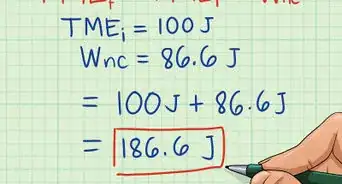 TMEi = 100 J
Wnc = 86.6 J
= 100J + 86.6J
= 186.6 J